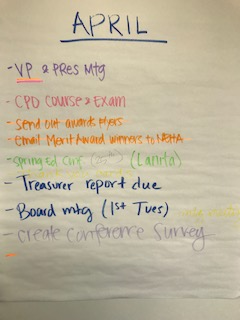 APRIL
- VP & PRes Mtg
- CPO Course & Exam
- Send out awards flyers
- Email Merit Award winners to NEHA
- Spring Ed Conf (Lanita)
- Treasurer report due
- Board mtg (1st Tues)
- Create Conference Survey
-